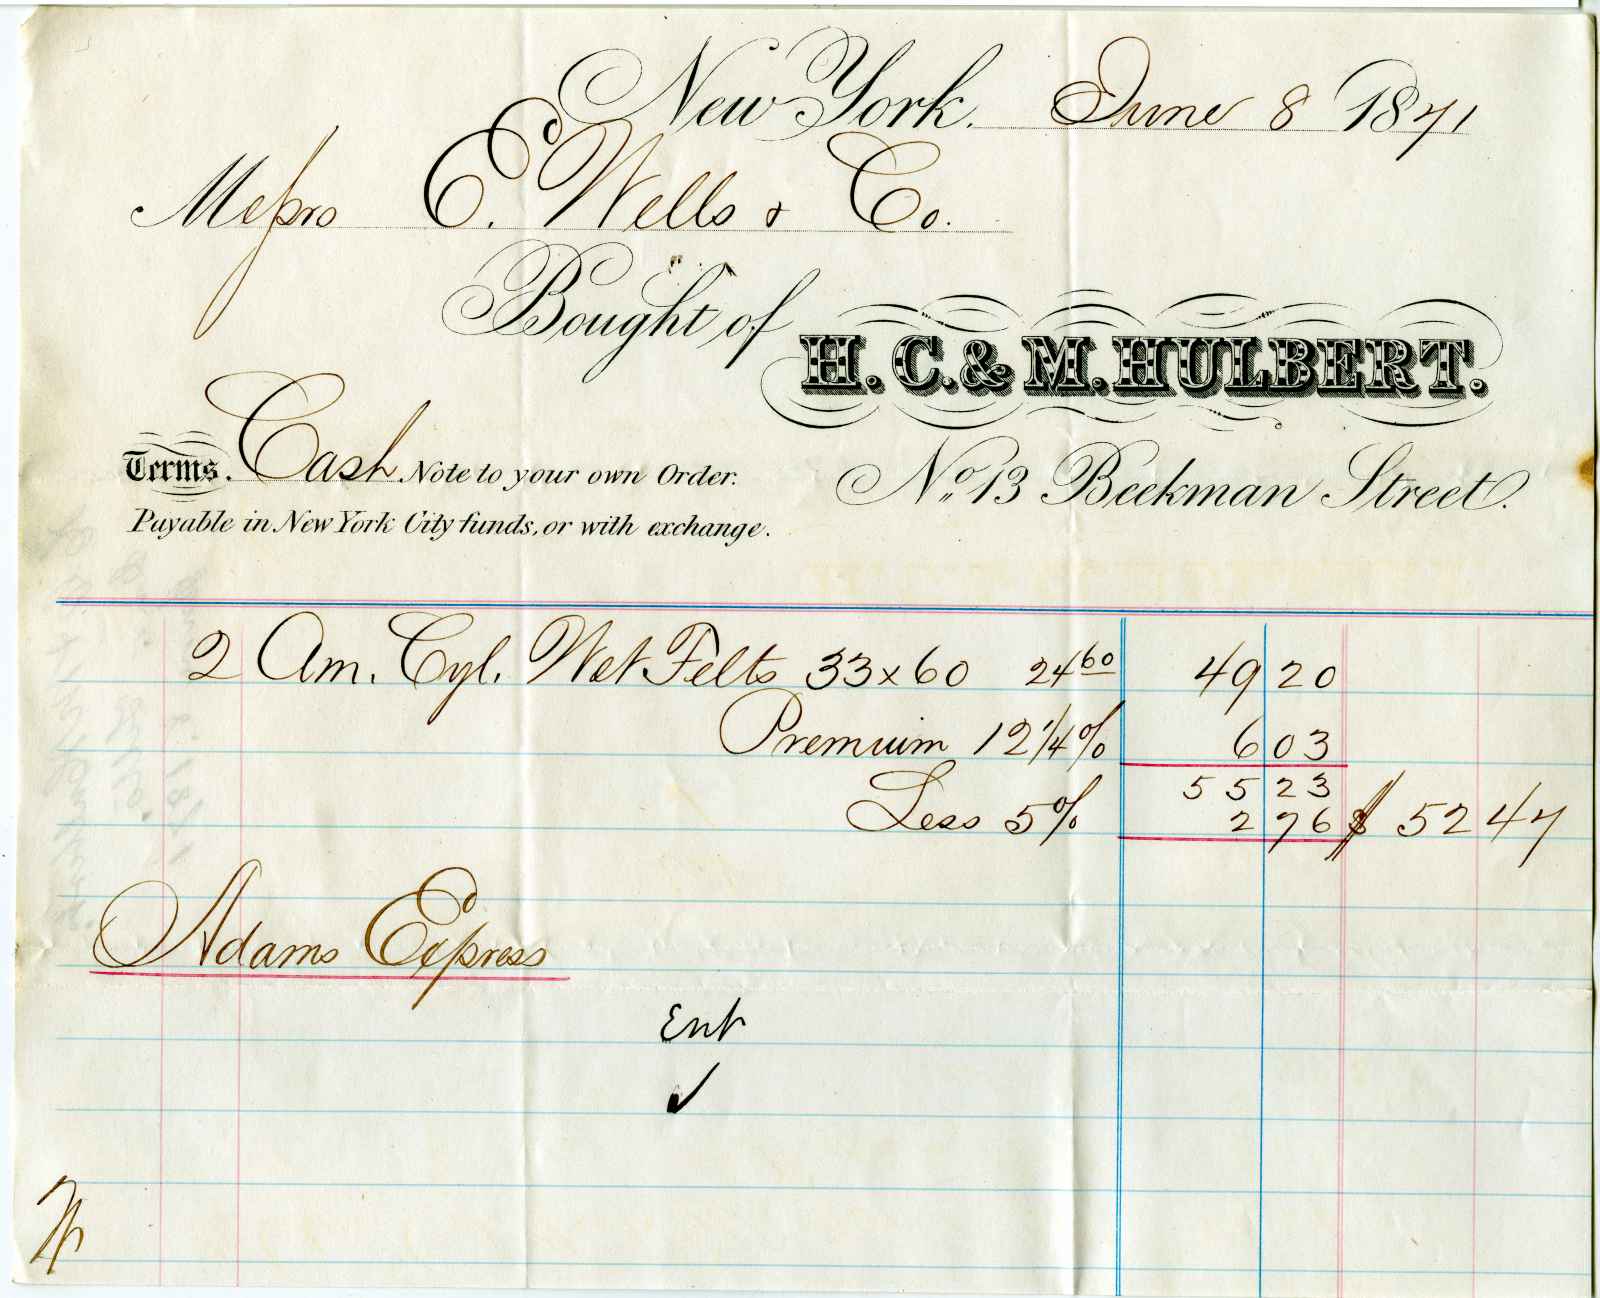 New York. June 8 1871
Messrs E. Wells & Co.
Bought of H. C. & M. HULBERT.
Terms. Cash Note to your own Order.
No. 13 Beekman Street.
Payable in New York City funds, or with exchange.
2 Am. Cyl. Wet Felts 33 x 60 24 60 49 20
Premium 12 1/4 % 6 03
55 23
Less 5 % 2 76 $ 52 47
Adams Express
Ent
✓